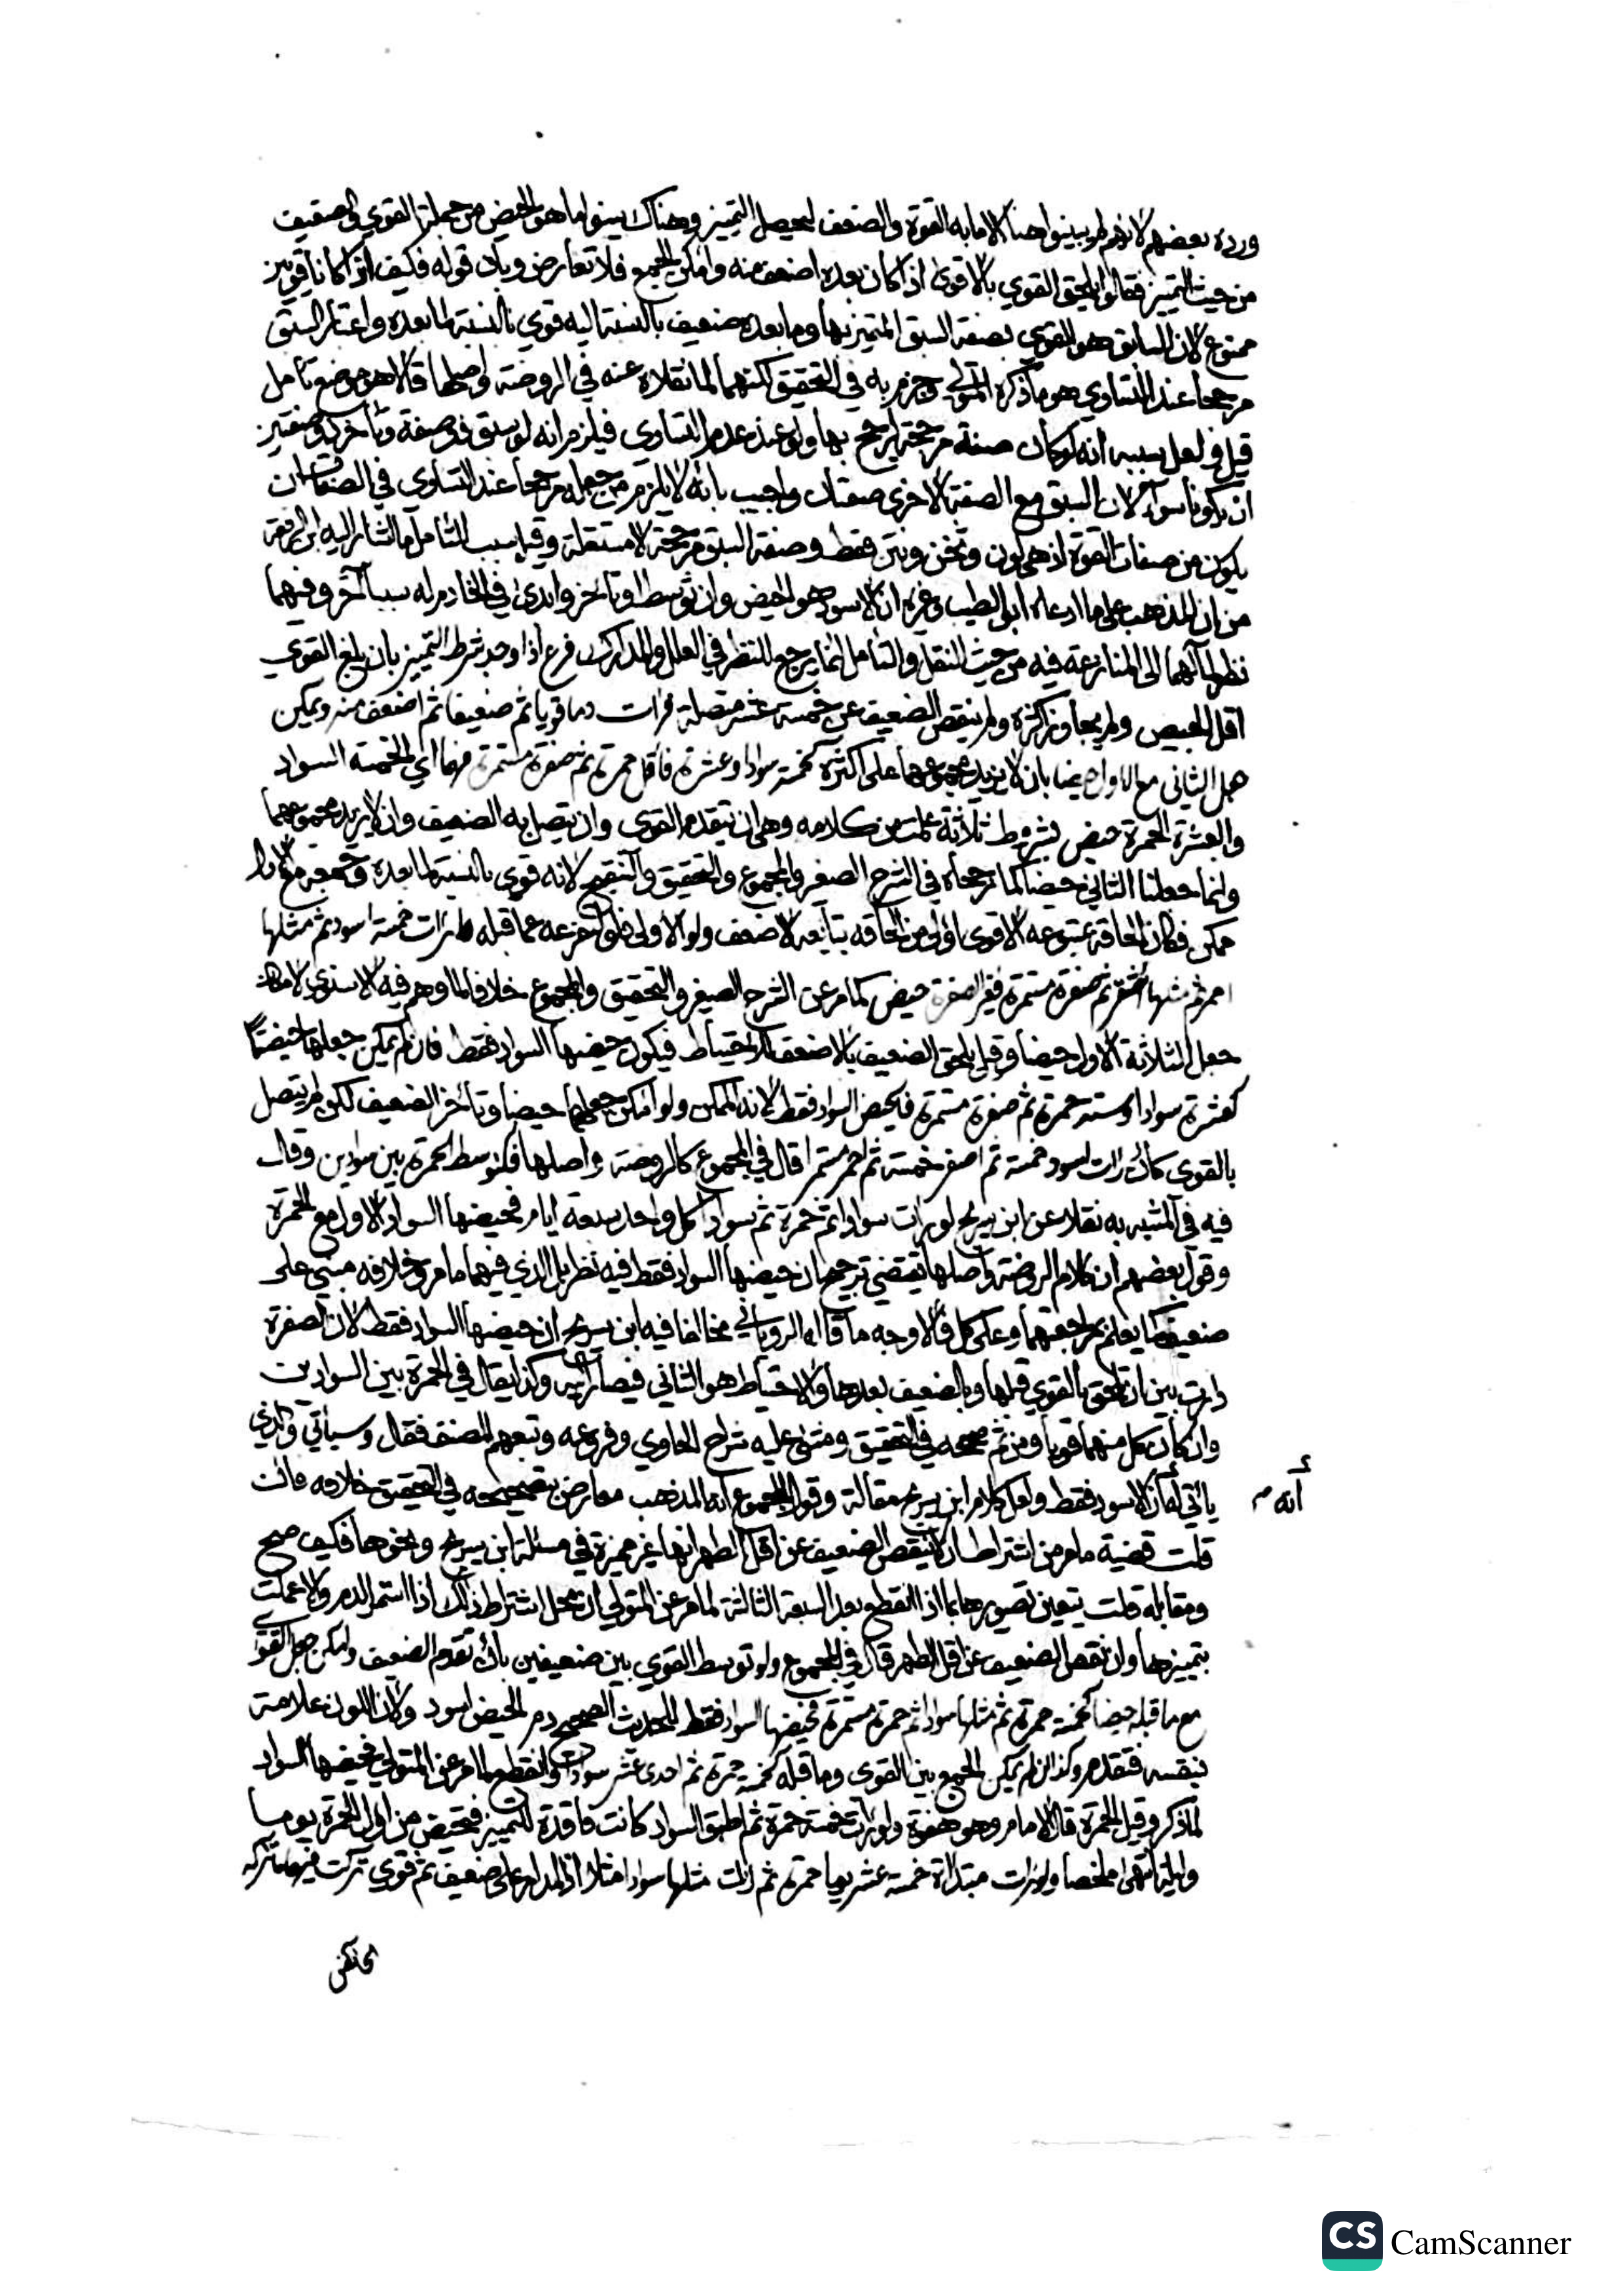 ورده بعضهم لانهم لم يبينوا هنا الا ما به القوة والضعف ليحصل التمييز وهناك بينوا ما هو الحيض من جملة القوي والضعيف
من حيث التمييز فقالوا يلحق القوي بالاقوى اذا كان بعده اضعف منه وامكن الجمع فلا تعارض وبان قوله فكيف اذا كانا قويين
ممنوع لان السابق هو القوي بصفة السبق المتميز بها وما بعده ضعيف بالنسبة اليه قوي بالنسبة لما بعده واعتبار السبق
مرجحا عند التساوي هو ما ذكره المتولي وجزم به في التحقيق لكنهما لما نقلاه عنه في الروضة واصلها قالا هو موضع تأمل
قيل ولعل سببه انه لو كان صفة مرجحة لرجح بها ولو عند عدم التساوي فيلزم انه لو سبق ذو صفة وتأخر ذو صفتين
ان يكونا سواء لان السبق مع الصفة الاخرى صفتان واجيب بانه لا يلزم من جعله مرجحا عند التساوي في الصفات ان
يكون من صفات القوة اذ هي لون وثخن ونتن فقط وصفة السبق مرجحة لا مستقلة وقيل سبب التأمل ما اشار اليه ابن الرفعة
من ان المذهب على ما ادعاه ابو الطيب وغيره ان الاسود هو الحيض وان توسط او تأخر وابدى في الخادم له سببا آخر وفيهما
نظر لمآلهما الى المنازعة فيه من حيث النقل والتأمل انما يرجع للنظر في العلل والمدارك فرع اذا وجد شرط التمييز بان بلغ القوي
اقل الحيض ولم يجاوز اكثره ولم ينقص الضعيف عن خمسة عشر متصلة فرات دما قويا ثم ضعيفا ثم اضعف منه ويمكن
جعل الثاني مع الاول حيضا بان لا يزيد مجموعهما على اكثره كخمسة سوادا وعشرة فاقل حمرة ثم صفرة مستمرة فهما اي الخمسة السواد
والعشرة الحمرة حيض بشروط ثلاثة علمت من كلامه وهي ان يتقدم القوي وان يتصل به الضعيف وان لا يزيد مجموعهما
وانما جعلنا الثاني حيضا كما رجحاه في الشرح الصغير والمجموع والتحقيق والتنقيح لانه قوي بالنسبة لما بعده وجمعه مع الاول
ممكن فكان الحاقه بمتبوعه الاقوى اولى من الحاقه بتابعه الاضعف ولو رات خمسة اسود ثم مثلها
احمر ثم مثلها اشقر ثم صفرة مستمرة فغير الصفرة حيض كما مر عن الشرح الصغير والتحقيق والمجموع خلافا لما وهم فيه الاسنوي لامكان
جعل الثلاثة الاول حيضا وقيل يلحق الضعيف بالاضعف للاحتياط فيكون حيضها السواد فقط فان لم يمكن جعلهما حيضا
كعشرة سوادا وستة حمرة ثم صفرة مستمرة فالحيض السواد فقط لانه الممكن ولو امكن جعلهما حيضا وتأخر الضعيف لكن لم يتصل
بالقوي كأن رات اسود خمسة ثم اصفر خمسة ثم احمر مستمرا قال في المجموع كالروضة واصلها فكتوسط الحمرة بين سوادين وقال
فيه في المشبه به نقلا عن ابن سريج لو رات سوادا ثم حمرة ثم سوادا كل واحد سبعة ايام فحيضها السواد الاول مع الحمرة
وقول بعضهم ان كلام الروضة واصلها يقتضي ترجيح ان حيضها السواد فقط فيه نظر بل الذي فيهما ما مر وخلافه مبني على
ضعيف كما يعلم بمراجعتهما وعلى كل فالاوجه ما قاله الروياني مخالفا فيه ابن سريج ان حيضها السواد فقط لان الصفرة
دارت بين ان تلحق بالقوي قبلها وبالضعيف بعدها والاحتياط هو الثاني فيصار اليه وكذا يقال في الحمرة بين السوادين
وان كان كل منهما قويا ومن ثم صححه في التحقيق ومشى عليه شراح الحاوي وفروعه وتبعهم المصنف فقال وسيأتي والذي
يأتي له انه الاسود فقط ولعل كلام ابن سريج مقالة وقول المجموع انه المذهب معارض بتصحيحه في التحقيق خلافه فان
أنه
قلت قضية ما مر من اشتراط ان لا ينقص الضعيف عن اقل الطهر انها غير مميزة في مسئلة ابن سريج ونحوها فكيف صح
ومقابله قلت يتعين تصويرها بما اذا انقطع بعد السبعة الثالثة لما مر عن المتولي ان محل اشتراط ذلك اذا استمر الدم والا عملت
بتمييزها وان نقص الضعيف عن اقل الطهر قال في المجموع ولو توسط القوي بين ضعيفين بان تقدم الضعيف وامكن جعل القوي
مع ما قبله حيضا كخمسة حمرة ثم مثلها سوادا ثم حمرة مستمرة فحيضها السواد فقط للحديث الصحيح دم الحيض اسود ولان اللون علامة
بنفسه فتقدم وكذا ان لم يمكن الجمع بين القوي وما قبله كخمسة حمرة ثم احدى عشر سوادا وانقطع لما مر عن المتولي فحيضها السواد
لما ذكر وقيل الحمرة قال الامام وهو هفوة ولو رات خمسة حمرة ثم اطبق السواد كانت فاقدة للتمييز فتحيض من اول الحمرة يوما
وليلة انتهى ملخصا ولو رات مبتدأة خمسة عشر يوما حمرة ثم رات مثلها سوادا مثلا اذ المدار على ضعيف ثم قوي تركت فيهما ما تتركه